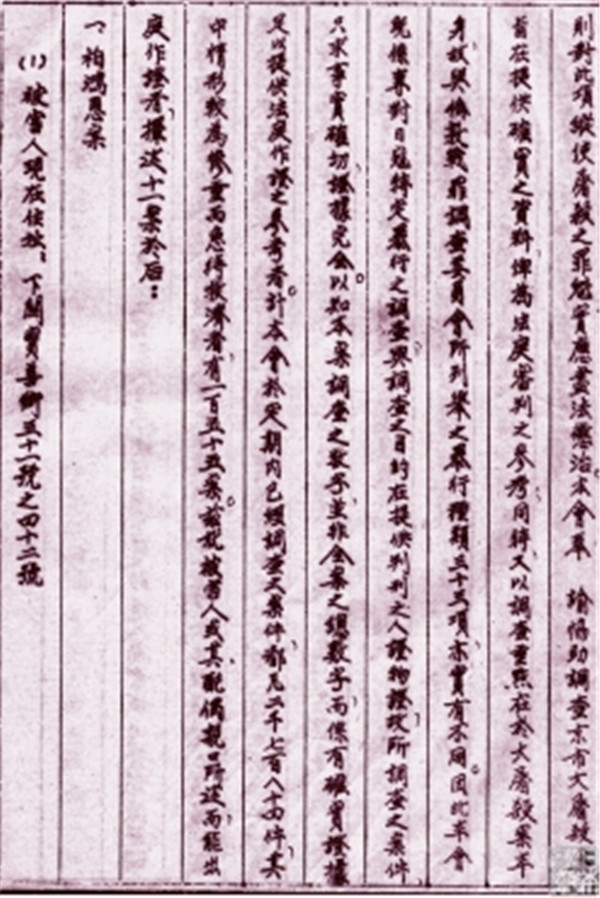 則對此項縱使屠殺之罪魁實應盡法懲治本會奉 諭協助調查京市大屠殺
旨在提供確實之資料俾為法庭審判之參考同時又以調查重點在於大屠殺案本
身故與偽敵戰罪調查委員會所列舉之暴行種類三十三項亦實有不同因此本會
既係專對日寇特定暴行之調查與調查之目的在提供判刑之人證物證故所調查之案件
只求事實確切證據完全以知本案調查之數字並非全案之總數字而係有確實證據
足以提供法庭作證之參考者計本會於定期內已經調查之案件都凡二千七百八十四件其
中情形較為慘重而急待救濟者有一百五十五案茲就被害人或其配偶親口所述而能出
庭作證者摭述十一案於后：
一、柏鴻恩案
（1）被害人現在住址：下關寶善街五十一號之四十二號